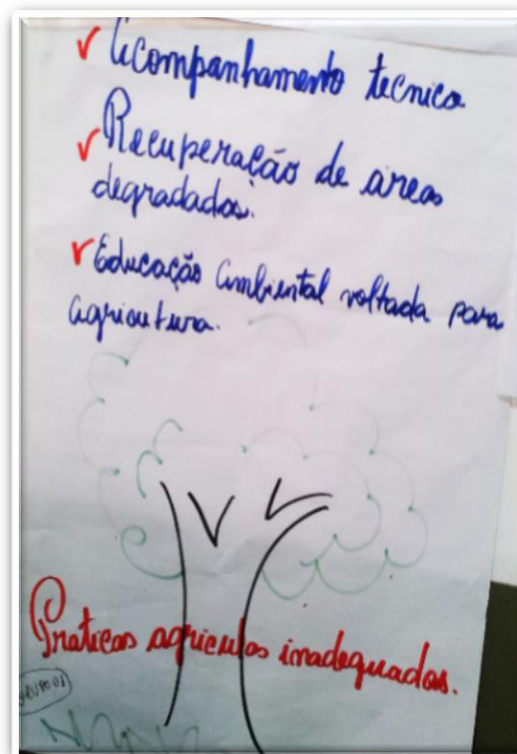 ✓ Acompanhamento tecnico
✓ Recuperação de areas
degradadas.
✓ Educação ambiental voltada para
agricutura.
Praticas agriculas inadequadas.
GRUPO 01